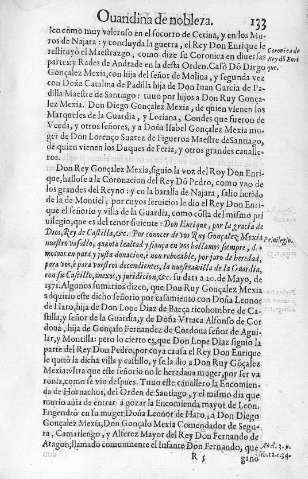 Guaridina de nobleza. 133
leo como muy valeroso en el socorro de Cetina, y en los Mu-
ros de Naxara: y concluyda la guerra, el Rey Don Enrique le
restituyó el Maestrazgo, como dize su Coronica en diuersas
partes; y Rades de Andrade en la desta Orden. Casó Dō Diego
Gonçalez Mexia, con hija del señor de Molina, y segunda vez
con Doña Catalina de Padilla hija de Don Iuan Garcia de Pa-
dilla Maestre de Santiago: tuuo por hijos a Don Ruy Gonça-
lez Mexia. Don Diego Gonçalez Mexia, de quien vienen los
Marqueses de la Guardia, y Loriana, Condes que fueron de
Vceda, y otros señores, y a Doña Isabel Gonçalez Mexia mu-
ger de Don Lorenço Suarez de Figueroa Maestre de Santiago,
de quien vienen los Duques de Feria, y otros grandes caualle-
ros.
Don Rey Gonçalez Mexia, siguio la voz del Rey Don Enri-
que, hallose a la Coronacion del Rey Dō Pedro, como vno de
los grandes del Reyno: y en la batalla de Najara, salio herido
de la de Montiel; por cuyos seruicios le dio el Rey Don Enri-
que el señorio y villa de la Guardia, como cōsta del mismo pri
uilegio, que es del tenor siguiente: Don Enrique, por la gracia de
Dios, Rey de Castilla, &c. Por conocer de vos Ruy Gonçalez Mexia
nuestro vassallo, quanta lealtad y fiança en vos hallamos siempre,
1371. Algunos sumarios dizen, que Don Ruy Gonçalez Mexia
adquirio este dicho señorio por casamiento con Doña Leonor
de Haro, hija de Don Lope Diaz de Baeça ricohombre de Cas-
tilla, y señor de la Guardia, y de Doña Vrraca Alfonso de Cor
doua, hija de Gonçalo Fernandez de Cordoua señor de Aguil-
lar, y Montilla: pero lo cierto es, que Don Lope Diaz siguio la
parte del Rey Don Pedro, por cuya causa el Rey Don Enrique
le quitó la dicha villa y castillo, y se la dio a Don Ruy Gōçalez
Mexia:
ronia, como se vio despues. Tuuo este cauallero la Encomien-
da de Hornachos, del Orden de Santiago, y el mismo dia que
murio auia de entrar a gozar la Encomienda mayor de Leon.
Engendró en su muger Doña Leonor de Haro, a Don Diego
Gonçalez Mexia, Don Gonçalo Mexia Comendador de Segu-
ra, Camarlengo, y Alferez Mayor del Rey Don Fernando de
Aragon, llamado comunmente el Infante Don Fernando, que
R 5 gano
Coronica de
Rey dō Enri
que.
Priuilegio.